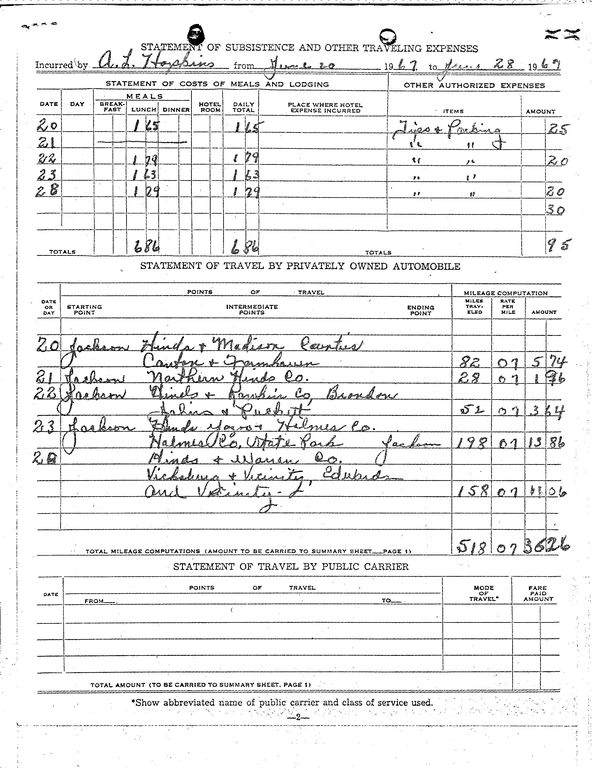 STATEMENT OF SUBSISTENCE AND OTHER TRAVELING EXPENSES
Incurred by A. L. Hopkins from June 20 1967 to June 28 1967
STATEMENT OF COSTS OF MEALS AND LODGING OTHER AUTHORIZED EXPENSES
MEALS
DATE DAY BREAK-FAST LUNCH DINNER HOTEL ROOM DAILY TOTAL PLACE WHERE HOTEL EXPENSE INCURRED ITEMS AMOUNT
20 1 65 1 65 Tips & Parking 25
21 " "
22 1 79 1 79 " " 20
23 1 63 1 63 " "
28 1 79 1 79 " " 20
30
TOTALS 6 86 6 86 TOTALS 95
STATEMENT OF TRAVEL BY PRIVATELY OWNED AUTOMOBILE
POINTS OF TRAVEL MILEAGE COMPUTATION
DATE OR DAY STARTING POINT INTERMEDIATE POINTS ENDING POINT MILES TRAV-ELED RATE PER MILE AMOUNT
20 Jackson Hinds & Madison Counties
Canton & Farmhaven 82 07 5 74
21 Jackson Northern Hinds Co. 28 07 1 96
22 Jackson Hinds & Rankin Co, Brandon
Johns & Puckett 52 07 3 64
23 Jackson Hinds Yazoo & Holmes Co.
Holmes Co, State Park Jackson 198 07 13 86
28 Hinds & Warren Co.
Vicksburg & Vicinity, Edwards
and Vicinity 158 07 11 06
TOTAL MILEAGE COMPUTATIONS (AMOUNT TO BE CARRIED TO SUMMARY SHEET PAGE 1) 518 07 36 26
STATEMENT OF TRAVEL BY PUBLIC CARRIER
DATE POINTS OF TRAVEL MODE OF TRAVEL* FARE PAID AMOUNT
FROM TO
TOTAL AMOUNT (TO BE CARRIED TO SUMMARY SHEET, PAGE 1)
*Show abbreviated name of public carrier and class of service used.
—2—